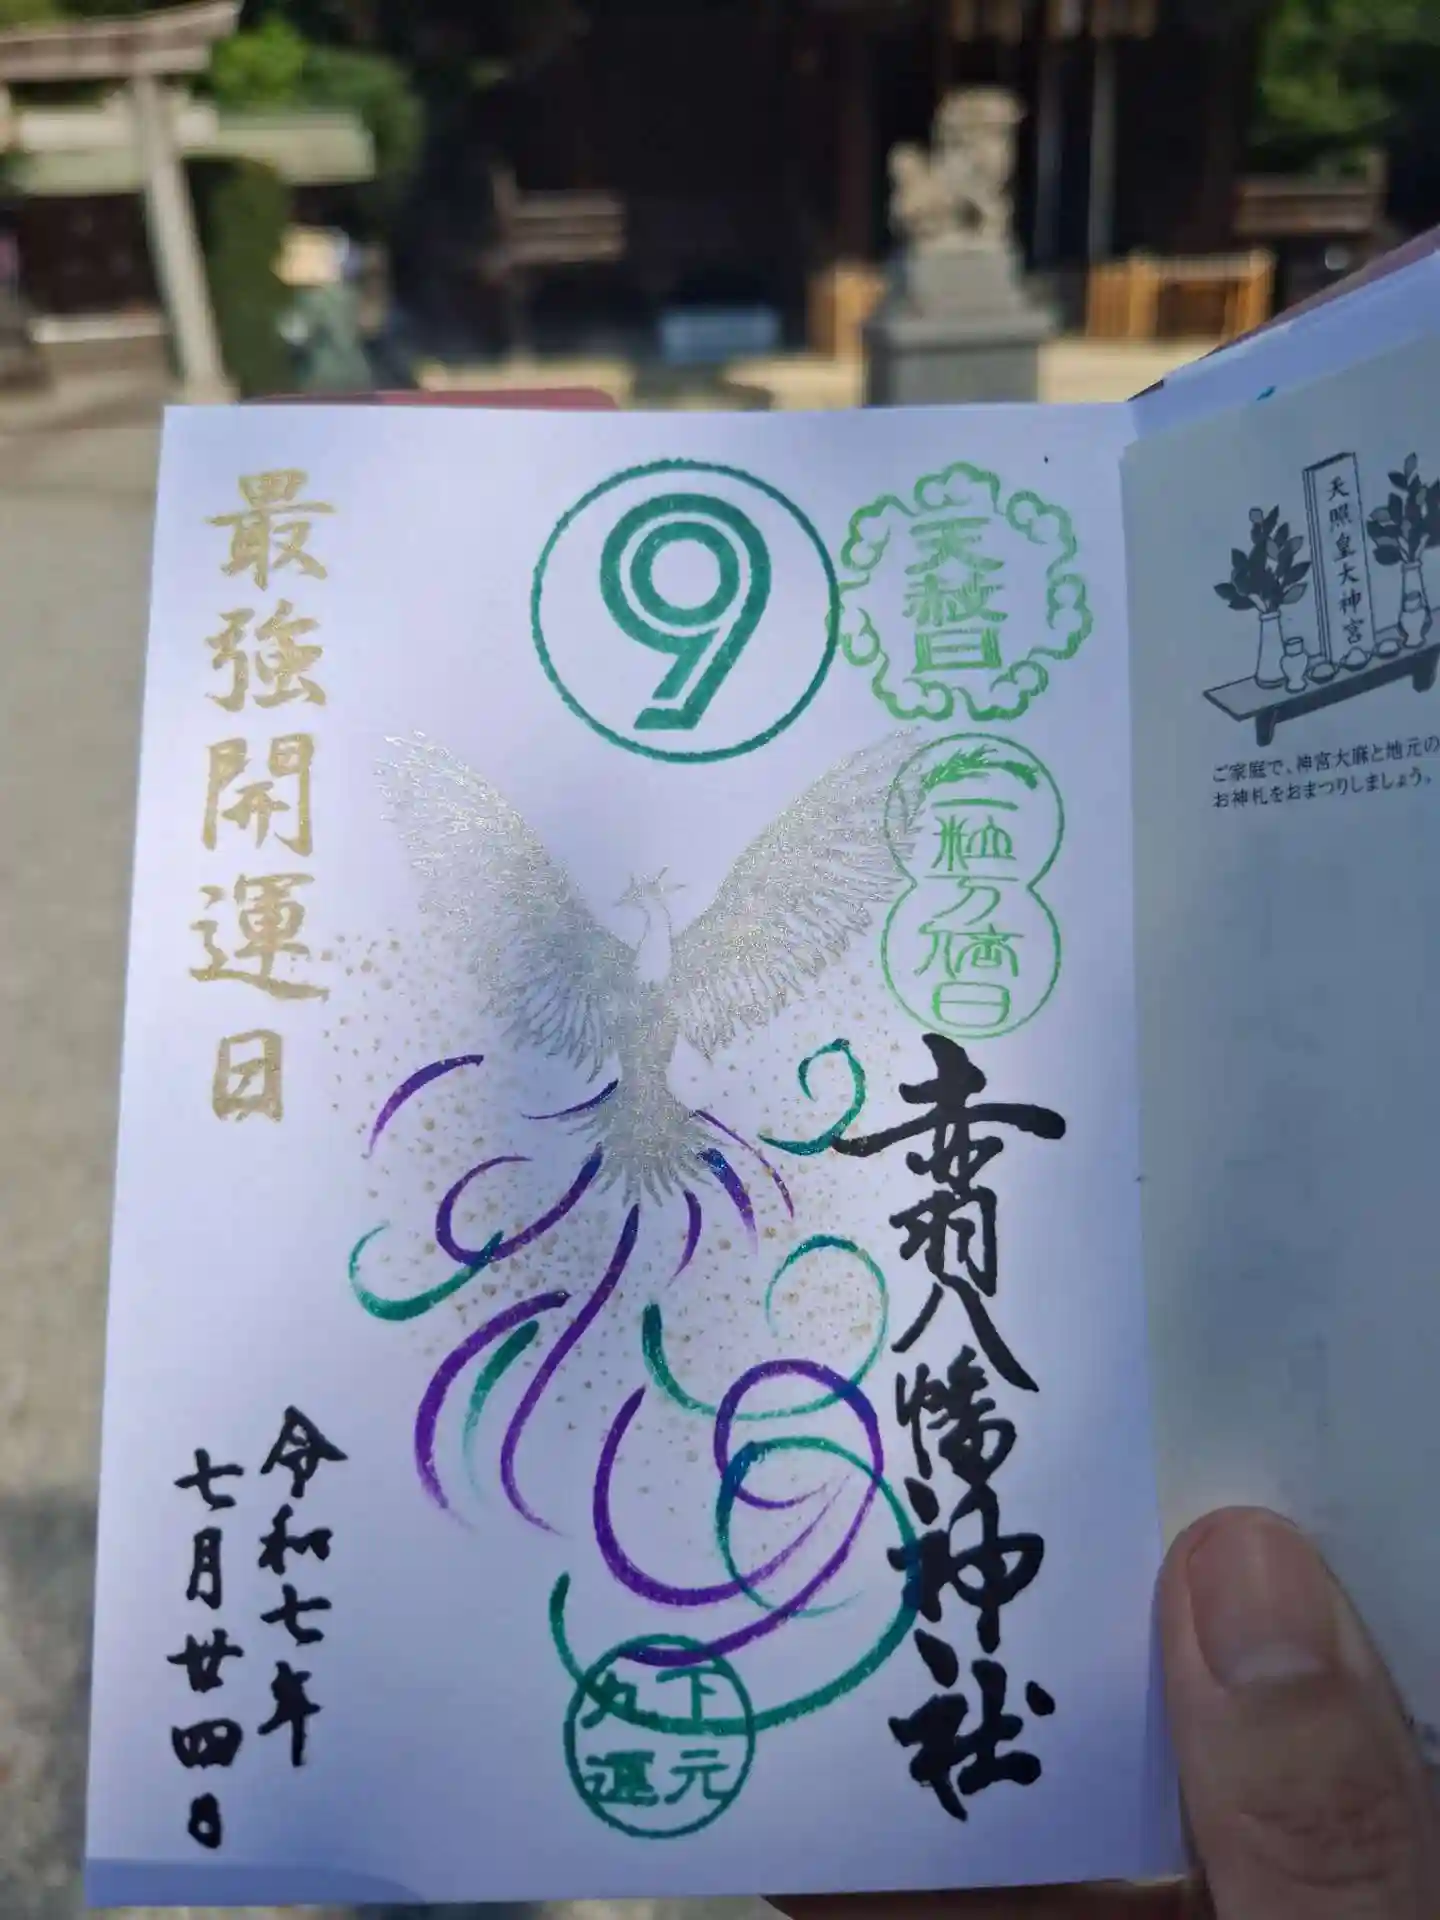 天赦日
一粒万倍日
赤羽八幡神社
9
下元
九運
最強開運日
令和七年
七月廿四日
天照皇大神宮
ご家庭で、神宮大麻と地元の
お神札をおまつりしましょう。